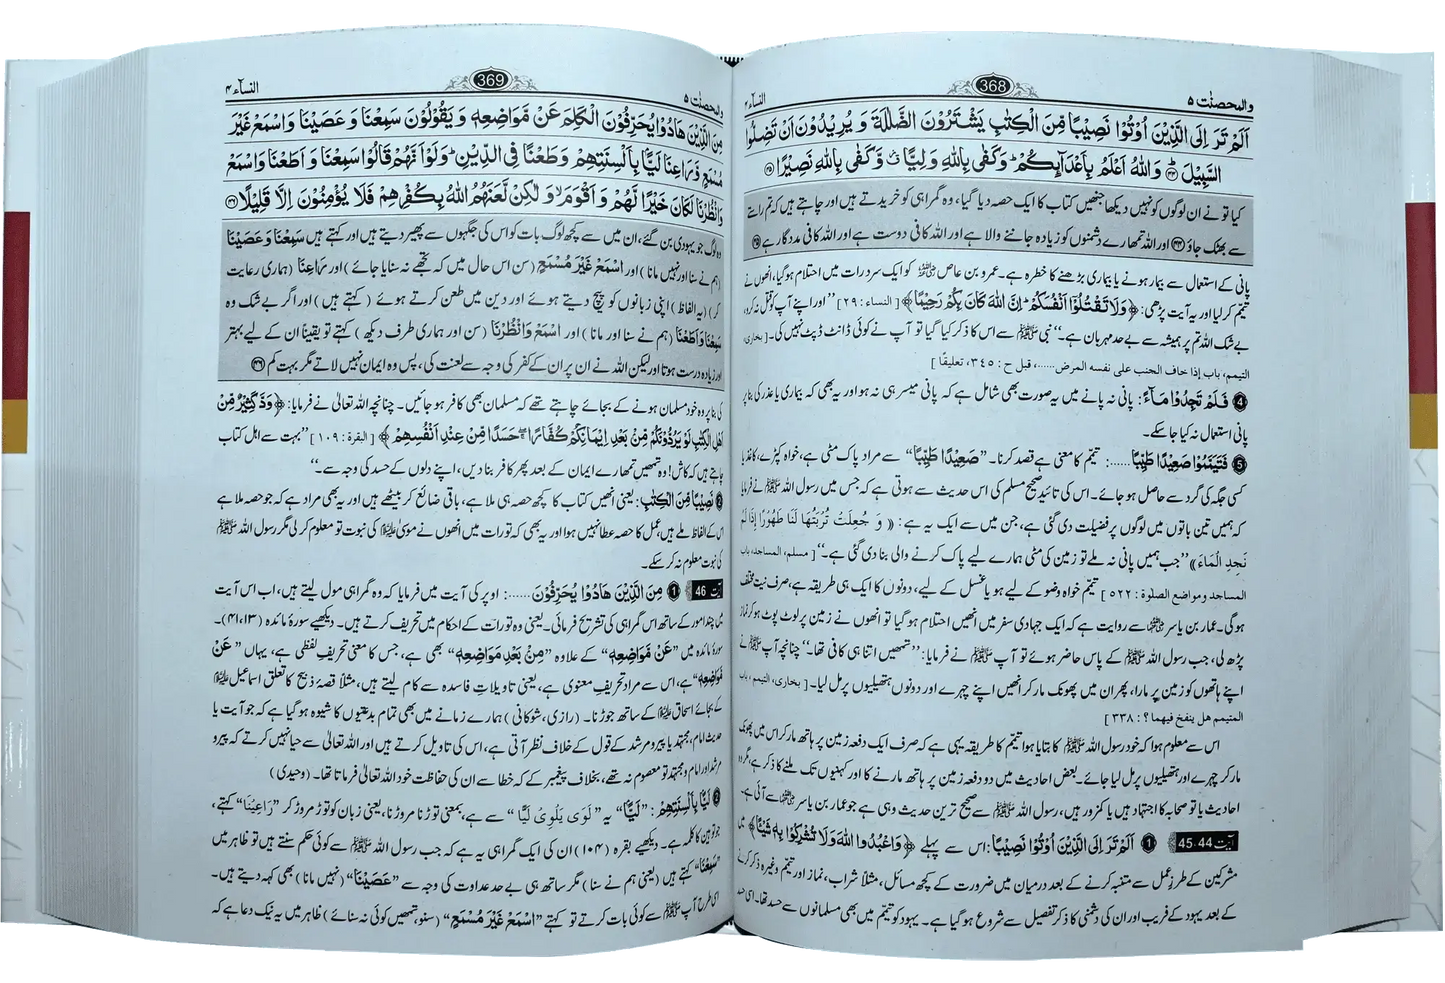 والمحصنٰت ٥
368
النساء ٤
اَلَمْ تَرَ اِلَى الَّذِيْنَ اُوْتُوْا نَصِيْبًا مِّنَ الْكِتٰبِ يَشْتَرُوْنَ الضَّلٰلَةَ وَ يُرِيْدُوْنَ اَنْ تَضِلُّوا
السَّبِيْلَ ؕ﴿٤٤﴾ وَاللّٰهُ اَعْلَمُ بِاَعْدَآىِٕكُمْ ؕ وَكَفٰى بِاللّٰهِ وَلِيًّا ۙ وَّكَفٰى بِاللّٰهِ نَصِيْرًا ﴿٤٥﴾
کیا تو نے ان لوگوں کو نہیں دیکھا جنھیں کتاب کا ایک حصہ دیا گیا، وہ گمراہی کو خریدتے ہیں اور چاہتے ہیں کہ تم راستے
سے بھٹک جاؤ ﴿٤٤﴾ اور اللہ تمھارے دشمنوں کو زیادہ جاننے والا ہے اور اللہ کافی دوست ہے اور اللہ کافی مددگار ہے ﴿٤٥﴾
پانی کے استعمال سے بیمار ہونے یا بیماری بڑھنے کا خطرہ ہے۔ عمرو بن عاص ؓ کو ایک سرد رات میں احتلام ہو گیا، انھوں نے
تیمم کر لیا اور یہ آیت پڑھی: ﴿وَلَا تَقْتُلُوْۤا اَنْفُسَكُمْ ؕ اِنَّ اللّٰهَ كَانَ بِكُمْ رَحِيْمًا﴾ [ النساء : ٢٩ ] ’’اور اپنے آپ کو قتل نہ کرو،
بے شک اللہ تم پر ہمیشہ سے بے حد مہربان ہے۔‘‘ نبی ﷺ سے اس کا ذکر کیا گیا تو آپ نے کوئی ڈانٹ ڈپٹ نہیں کی۔ [ بخاری،
التیمم، باب إذا خاف الجنب علی نفسه المرض......، قبل ح : ٣٤٥، تعلیقًا ]
4 فَلَمْ تَجِدُوْا مَآءً: پانی نہ پانے میں یہ صورت بھی شامل ہے کہ پانی میسر ہی نہ ہو اور یہ بھی کہ بیماری یا عذر کی بنا پر
پانی استعمال نہ کیا جا سکے۔
5 فَتَيَمَّمُوْا صَعِيْدًا طَيِّبًا......: تیمم کا معنی ہے قصد کرنا۔ ’’صَعِيْدًا طَيِّبًا‘‘ سے مراد پاک مٹی ہے، خواہ کپڑے، کاغذ یا
کسی جگہ کی گرد سے حاصل ہو جائے۔ اس کی تائید صحیح مسلم کی اس حدیث سے ہوتی ہے کہ جس میں رسول اللہ ﷺ نے فرمایا
کہ ہمیں تین باتوں میں لوگوں پر فضیلت دی گئی ہے، جن میں سے ایک یہ ہے: « وَ جُعِلَتْ تُرْبَتُهَا لَنَا طَهُوْرًا إِذَا لَمْ
نَجِدِ الْمَاءَ» ’’جب ہمیں پانی نہ ملے تو زمین کی مٹی ہمارے لیے پاک کرنے والی بنا دی گئی ہے۔‘‘ [ مسلم، المساجد، باب
المساجد ومواضع الصلوة : ٥٢٢ ] تیمم خواہ وضو کے لیے ہو یا غسل کے لیے، دونوں کا ایک ہی طریقہ ہے، صرف نیت مختلف
ہو گی۔ عمار بن یاسر ؓ سے روایت ہے کہ ایک جہادی سفر میں انھیں احتلام ہو گیا تو انھوں نے زمین پر لوٹ پوٹ ہو کر نماز
پڑھ لی، جب رسول اللہ ﷺ کے پاس حاضر ہوئے تو آپ ﷺ نے فرمایا: ’’تمھیں اتنا ہی کافی تھا۔‘‘ چنانچہ آپ ﷺ نے
اپنے ہاتھوں کو زمین پر مارا، پھر ان میں پھونک مار کر انھیں اپنے چہرے اور دونوں ہتھیلیوں پر مل لیا۔ [ بخاری، التیمم ، باب
المتیمم هل ینفخ فیهما؟ : ٣٣٨ ]
اس سے معلوم ہوا کہ خود رسول اللہ ﷺ کا بتایا ہوا تیمم کا طریقہ یہی ہے کہ صرف ایک دفعہ زمین پر ہاتھ مار کر اس میں پھونک
مار کر چہرے اور ہتھیلیوں پر مل لیا جائے۔ بعض احادیث میں دو دفعہ زمین پر ہاتھ مارنے کا اور کہنیوں تک ملنے کا ذکر ہے، مگر وہ
احادیث یا تو صحابہ کا اجتہاد ہیں یا کمزور ہیں، رسول اللہ ﷺ سے صحیح ترین حدیث وہی ہے جو عمار بن یاسر ؓ سے آئی ہے۔
آیت 45،44 1 اَلَمْ تَرَ اِلَى الَّذِيْنَ اُوْتُوْا نَصِيْبًا: اس سے پہلے ﴿وَاعْبُدُوا اللّٰهَ وَلَا تُشْرِكُوْا بِهٖ شَيْـًٔا﴾ میں
مشرکین کے طرزِ عمل سے متنبہ کرنے کے بعد درمیان میں ضرورت کے کچھ مسائل، مثلاً شراب، نماز اور تیمم وغیرہ ذکر کرنے
کے بعد یہود کے فریب اور ان کی دشمنی کا ذکر تفصیل سے شروع ہو گیا ہے۔ یہود کو تیمم میں بھی مسلمانوں سے حسد تھا۔ اسی حسد
والمحصنٰت ٥
369
النساء ٤
مِنَ الَّذِيْنَ هَادُوْا يُحَرِّفُوْنَ الْكَلِمَ عَنْ مَّوَاضِعِهٖ وَ يَقُوْلُوْنَ سَمِعْنَا وَ عَصَيْنَا وَ اسْمَعْ غَيْرَ
مُسْمَعٍ وَّ رَاعِنَا لَيًّۢا بِاَلْسِنَتِهِمْ وَ طَعْنًا فِى الدِّيْنِ ؕ وَلَوْ اَنَّهُمْ قَالُوْا سَمِعْنَا وَ اَطَعْنَا وَ اسْمَعْ
وَانْظُرْنَا لَكَانَ خَيْرًا لَّهُمْ وَ اَقْوَمَ ۙ وَ لٰكِنْ لَّعَنَهُمُ اللّٰهُ بِكُفْرِهِمْ فَلَا يُؤْمِنُوْنَ اِلَّا قَلِيْلًا ﴿٤٦﴾
وہ لوگ جو یہودی بن گئے، ان میں سے کچھ لوگ بات کو اس کی جگہوں سے پھیر دیتے ہیں اور کہتے ہیں سَمِعْنَا وَ عَصَيْنَا
(ہم نے سنا اور نہیں مانا) اور اسْمَعْ غَيْرَ مُسْمَعٍ (سن اس حال میں کہ تجھے نہ سنایا جائے) اور رَاعِنَا (ہماری رعایت
کر) (یہ الفاظ) اپنی زبانوں کو پیچ دیتے ہوئے اور دین میں طعن کرتے ہوئے (کہتے ہیں) اور اگر بے شک وہ
سَمِعْنَا وَ اَطَعْنَا (ہم نے سنا اور مانا) اور اسْمَعْ وَانْظُرْنَا (سن اور ہماری طرف دیکھ) کہتے تو یقیناً ان کے لیے بہتر
اور زیادہ درست ہوتا اور لیکن اللہ نے ان پر ان کے کفر کی وجہ سے لعنت کی، پس وہ ایمان نہیں لاتے مگر بہت کم ﴿٤٦﴾
کی بنا پر وہ خود مسلمان ہونے کے بجائے چاہتے تھے کہ مسلمان بھی کافر ہو جائیں۔ چنانچہ اللہ تعالیٰ نے فرمایا: ﴿وَدَّ كَثِيْرٌ مِّنْ
اَهْلِ الْكِتٰبِ لَوْ يَرُدُّوْنَكُمْ مِّنْۢ بَعْدِ اِيْمَانِكُمْ كُفَّارًا ۖۚ حَسَدًا مِّنْ عِنْدِ اَنْفُسِهِمْ﴾ [ البقرة : ١٠٩ ] ’’بہت سے اہل کتاب
چاہتے ہیں کہ کاش! وہ تمھیں تمھارے ایمان کے بعد پھر کافر بنا دیں، اپنے دلوں کے حسد کی وجہ سے۔‘‘
2 نَصِيْبًا مِّنَ الْكِتٰبِ: یعنی انھیں کتاب کا کچھ حصہ ہی ملا ہے، باقی ضائع کر بیٹھے ہیں اور یہ بھی مراد ہے کہ جو حصہ ملا ہے
اس کے الفاظ ملے ہیں، عمل کا حصہ عطا نہیں ہوا اور یہ بھی کہ تورات میں انھوں نے موسیٰ ؑ کی نبوت تو معلوم کر لی مگر رسول اللہ ﷺ
کی نبوت معلوم نہ کر سکے۔
آیت 46 1 مِنَ الَّذِيْنَ هَادُوْا يُحَرِّفُوْنَ......: اوپر کی آیت میں فرمایا کہ وہ گمراہی مول لیتے ہیں، اب اس آیت
میں چند امور کے ساتھ اس گمراہی کی تشریح فرمائی۔ یعنی وہ تورات کے احکام میں تحریف کرتے ہیں۔ دیکھیے سورۂ مائدہ (۴۱،۱۳)۔
سورۂ مائدہ میں ’’عَنْ مَّوَاضِعِهٖ‘‘ کے علاوہ ’’مِنْۢ بَعْدِ مَوَاضِعِهٖ‘‘ بھی ہے، جس کا معنی تحریفِ لفظی ہے، یہاں ’’عَنْ
مَّوَاضِعِهٖ‘‘ ہے، اس سے مراد تحریفِ معنوی ہے، یعنی تاویلاتِ فاسدہ سے کام لیتے ہیں، مثلاً قصۂ ذبیح کا تعلق اسماعیل ؑ
کے بجائے اسحاق ؑ کے ساتھ جوڑنا۔ (رازی، شوکانی) ہمارے زمانے میں بھی تمام بدعتیوں کا شیوہ ہو گیا ہے کہ جو آیت یا
حدیث امام، مجتہد یا پیر و مرشد کے قول کے خلاف نظر آتی ہے، اس کی تاویل کرتے ہیں اور اللہ تعالیٰ سے حیا نہیں کرتے کہ پیر و
مرشد اور امام و مجتہد تو معصوم نہ تھے، بخلاف پیغمبر کے کہ خطا سے ان کی حفاظت خود اللہ تعالیٰ فرماتا تھا۔ (وحیدی)
2 لَيًّۢا بِاَلْسِنَتِهِمْ: ’’لَيًّا‘‘ یہ ’’لَوَى يَلْوِيْ لَيًّا‘‘ سے ہے، بمعنی توڑنا مروڑنا، یعنی زبان کو توڑ مروڑ کر ’’رَاعِيْنَا‘‘ کہتے،
جو توہین کا کلمہ ہے۔ دیکھیے بقرہ (۱۰۴) ان کی ایک گمراہی یہ ہے کہ جب رسول اللہ ﷺ سے کوئی حکم سنتے ہیں تو ظاہر میں
’’سَمِعْنَا‘‘ کہتے ہیں (یعنی ہم نے سنا) مگر ساتھ ہی بے حد عداوت کی وجہ سے ’’عَصَيْنَا‘‘ (نہیں مانا) بھی کہہ دیتے ہیں۔
اسی طرح آپ ﷺ سے کوئی بات کرتے تو کہتے ’’اسْمَعْ غَيْرَ مُسْمَعٍ‘‘ (سنو، تمھیں کوئی نہ سنائے) ظاہر میں یہ نیک دعا ہے کہ